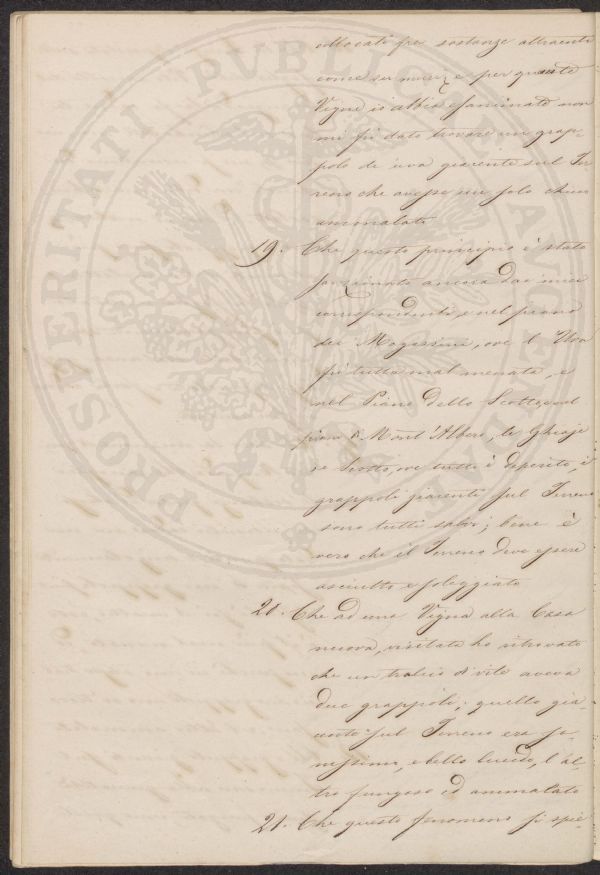 collocati fra sostanze attraenti
come su muri, e per quante
Vigne io abbia esaminato non
mi fù dato trovare un grap-
polo di uva giacente sul Ter
reno che avesse un solo chicco
ammalato
19. Che questo principio è stato
ancora dai miei
corrispondenti, e nel piano
dei Magazzini, ove l'Uva
fù tutta mal menata, e
nel Piano dello Scotto, e nel
piano di Mont'Albero, le Ghiaje
e Scotto, ove tutto è deperito, i
grappoli giacenti sul Terreno
sono tutti salvi; bene è
vero che il Terreno deve essere
asciutto e soleggiato
20. Che ad una Vigna alla Casa
nuova, visitata ho ritrovato
che un tralcio di vite aveva
due grappoli; quello gia-
cente sul Terreno era sa-
nissimo, e bello lucido, l'al-
tro fungoso ed ammalato
21. Che questo fenomeno si spie-
PROSPERITATI PUBLICAE AUGENDAE